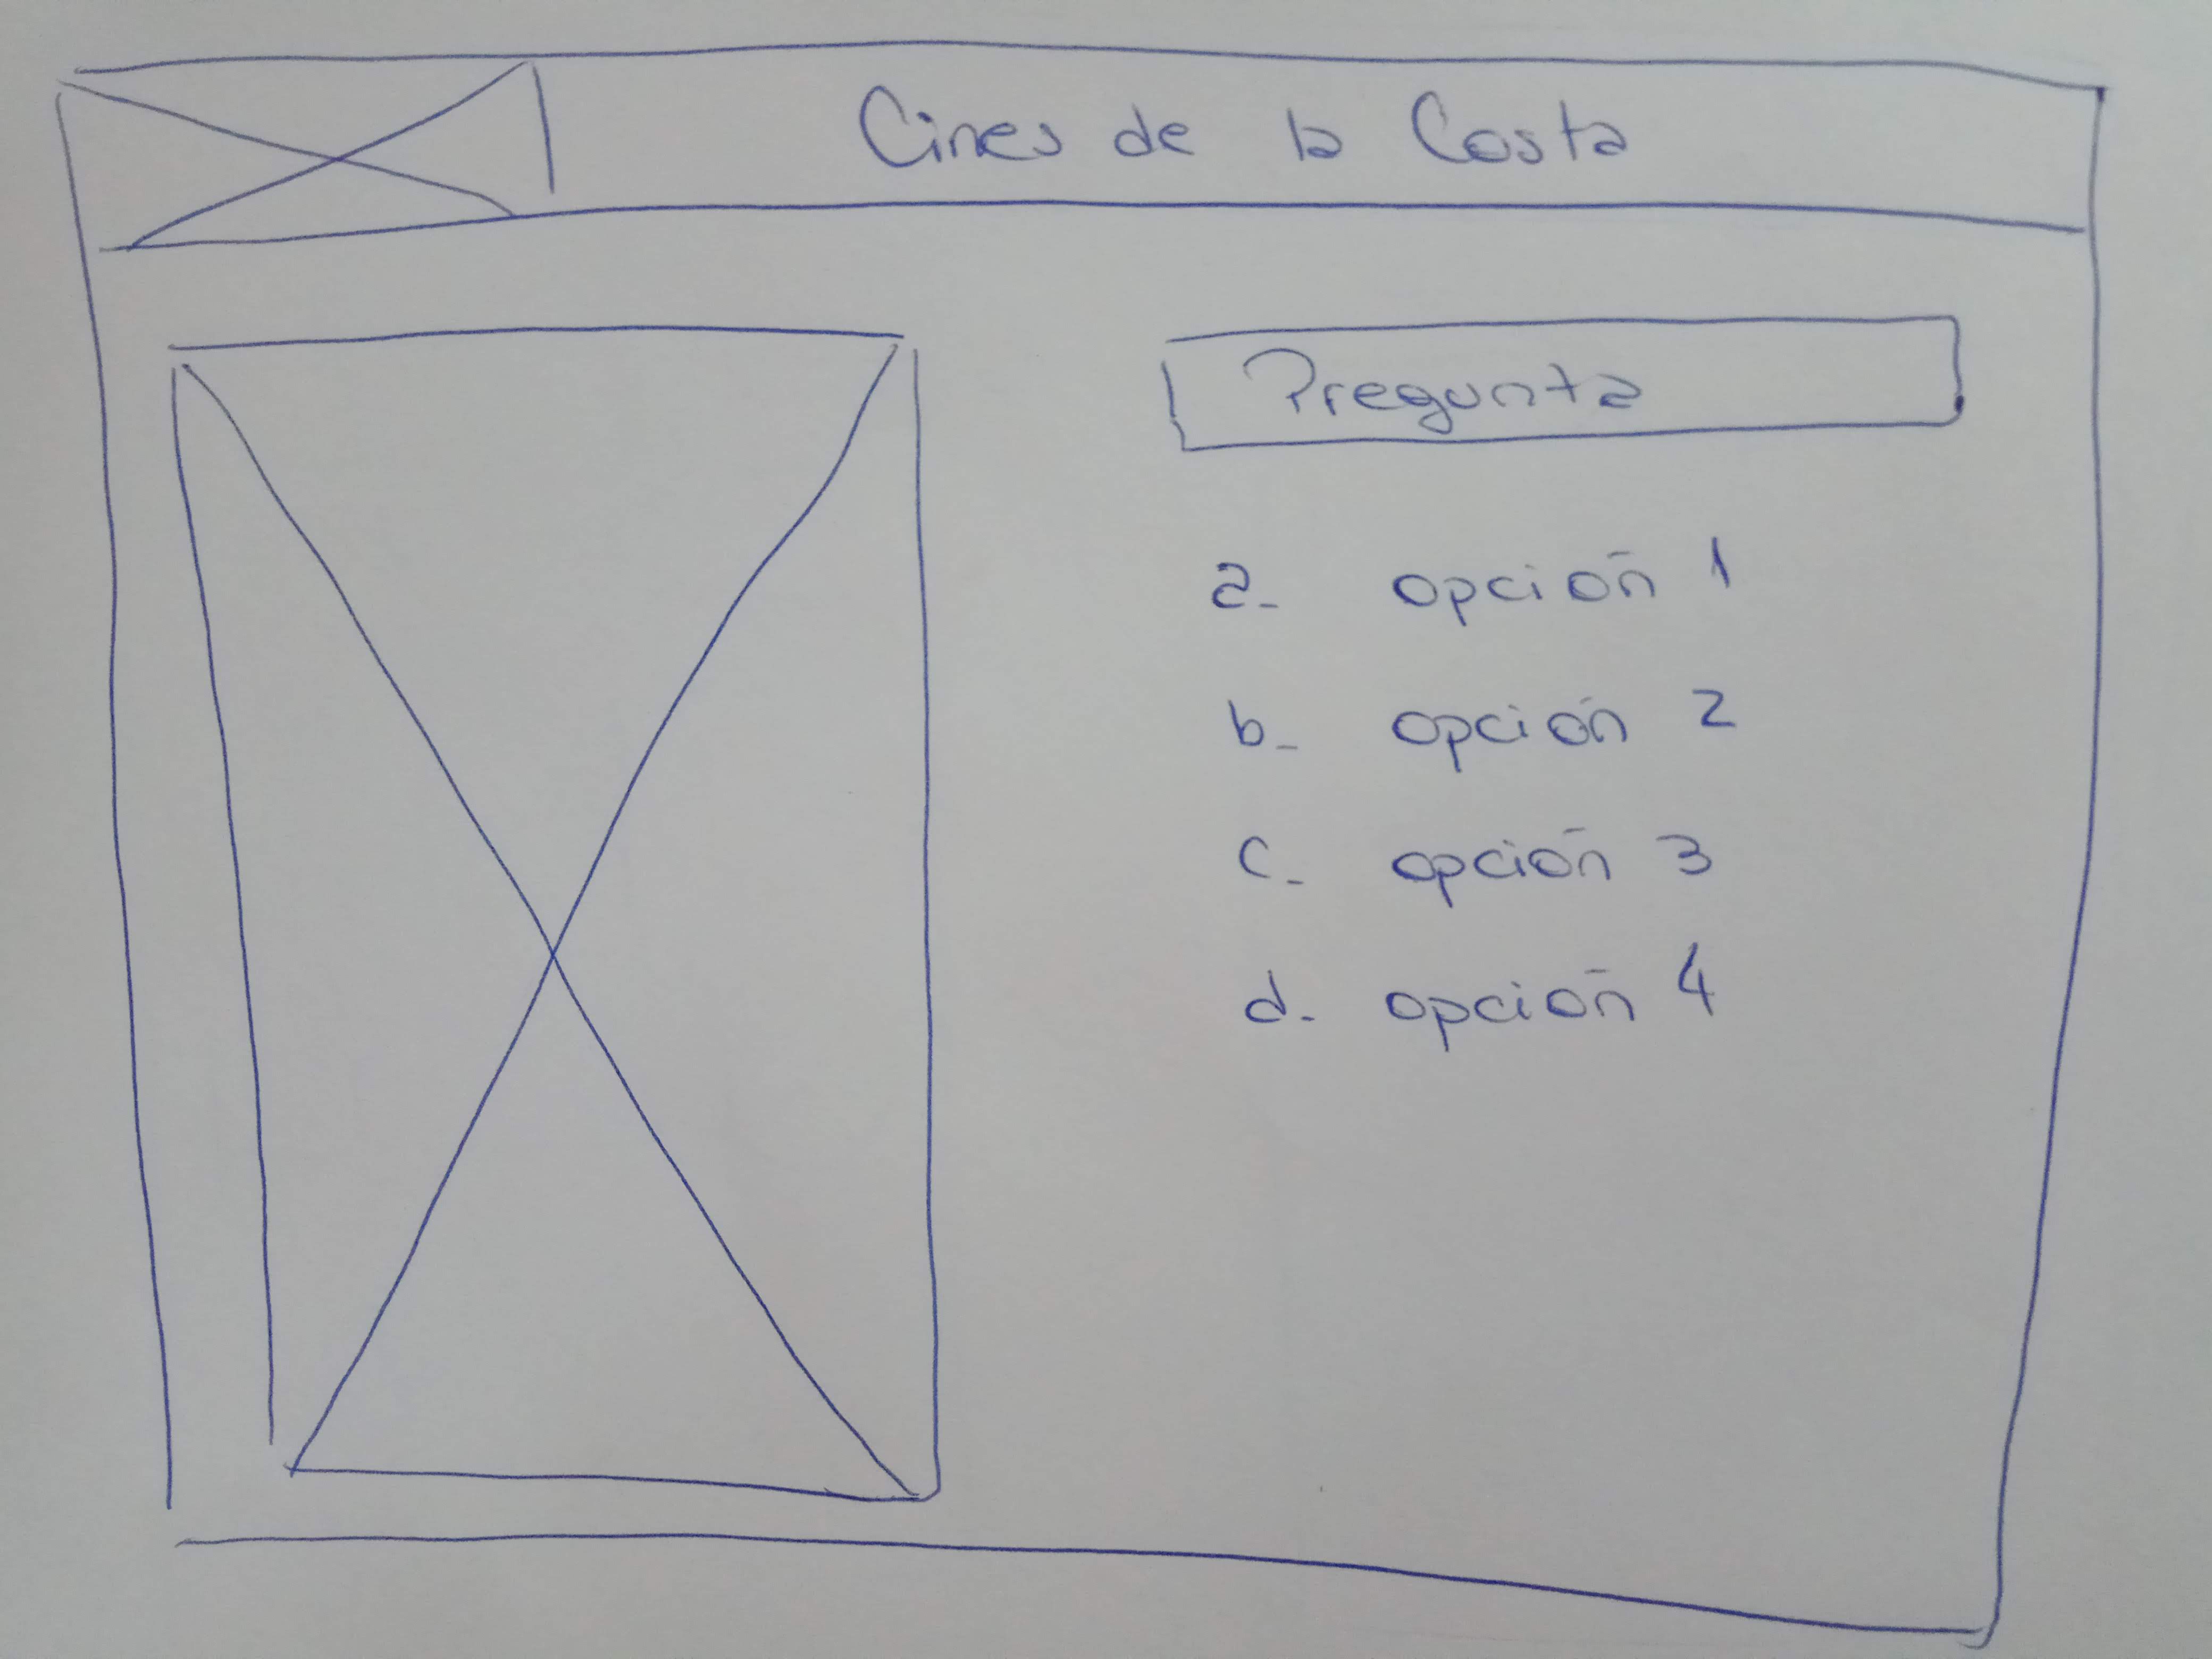 Cines de la Costa
Pregunta
a- opción 1
b- opción 2
c- opción 3
d- opción 4